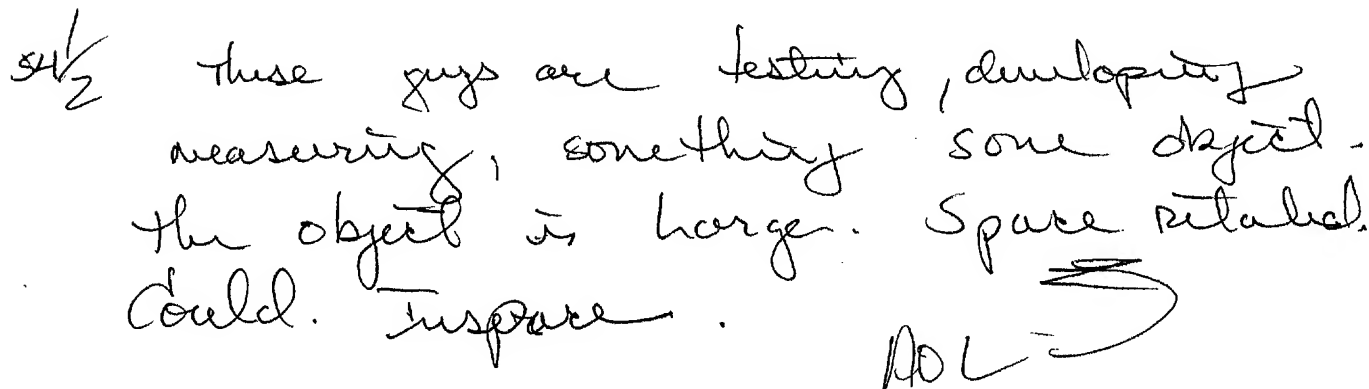 S4 1/2 These guys are testing, developing
measuring, something some object.
The object is large. Space related.
Could. In space.
AOL